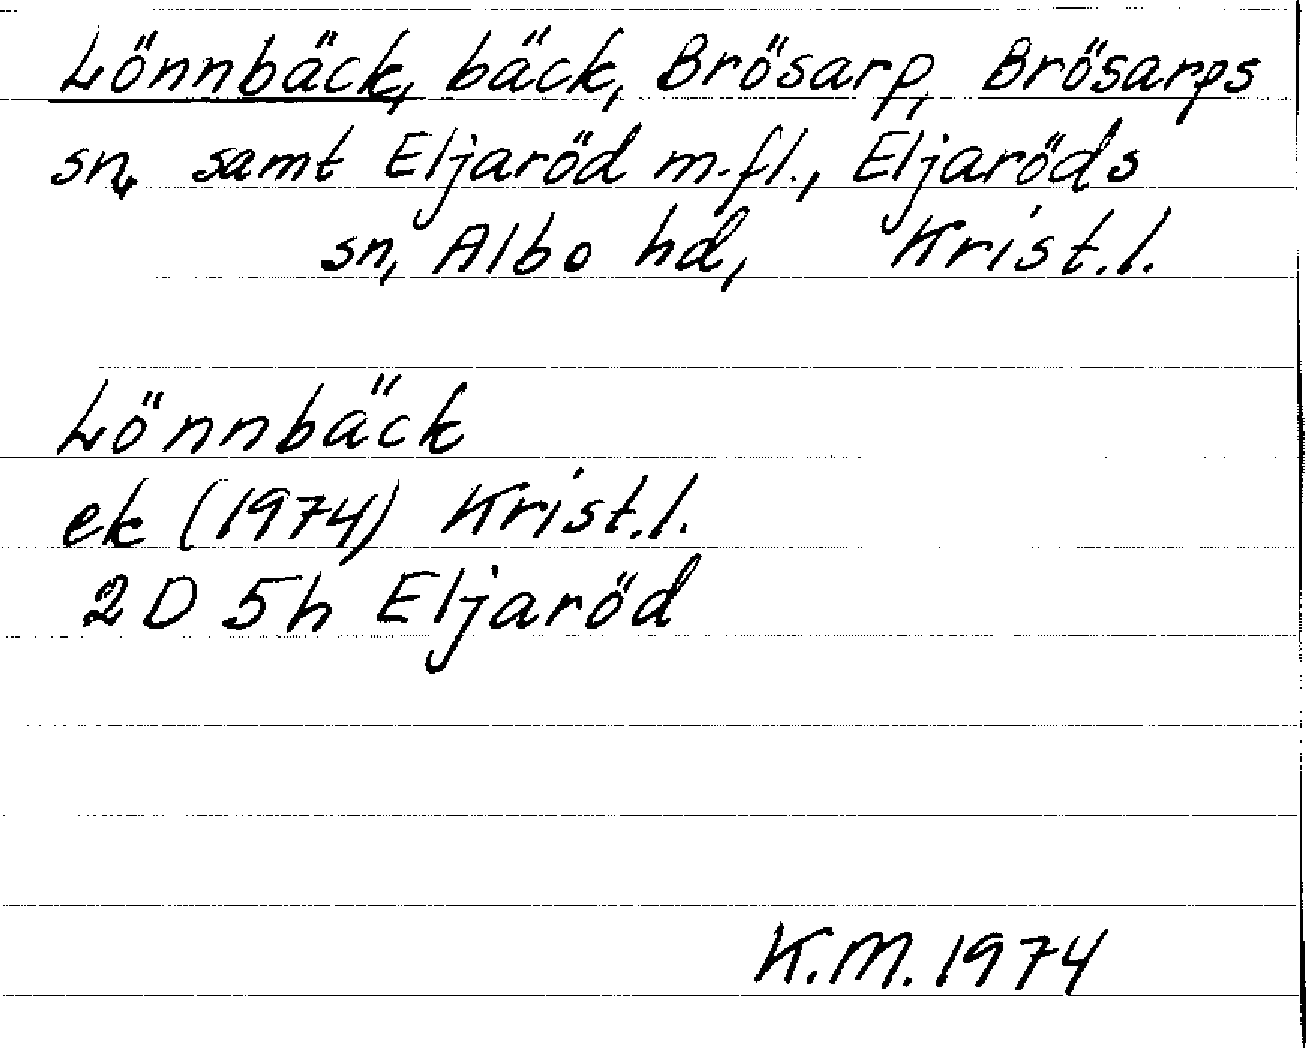 Lönnbäck, bäck, Brösarp, Brösarps
sn, samt Eljaröd m.fl., Eljaröds
sn, Albo hd, Krist.l.
Lönnbäck
ek (1974) Krist.l.
2D 5h Eljaröd
K.M. 1974